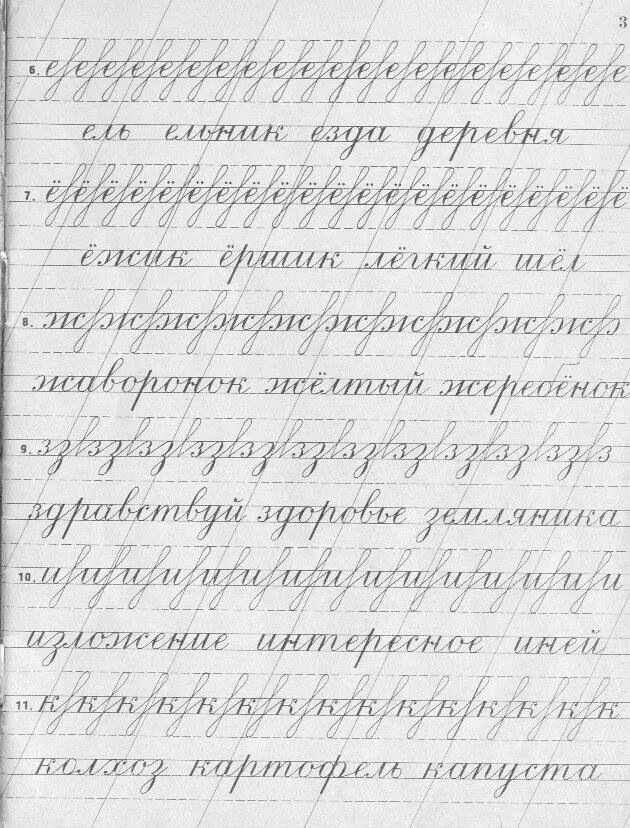 3
6. е е е е е е е е е е е е е е е е е е е е е
ель ельник езда деревня
7. ё ё ё ё ё ё ё ё ё ё ё ё ё ё ё ё ё ё ё ё ё
ёжик ёршик лёгкий шёл
8. ж ж ж ж ж ж ж ж ж ж ж
жаворонок жёлтый жеребёнок
9. з з з з з з з з з з з з з з з з
здравствуй здоровье земляника
10. и и и и и и и и и и и и и и и и
изложение интересное иней
11. к к к к к к к к к к к к к к к
колхоз картофель капуста